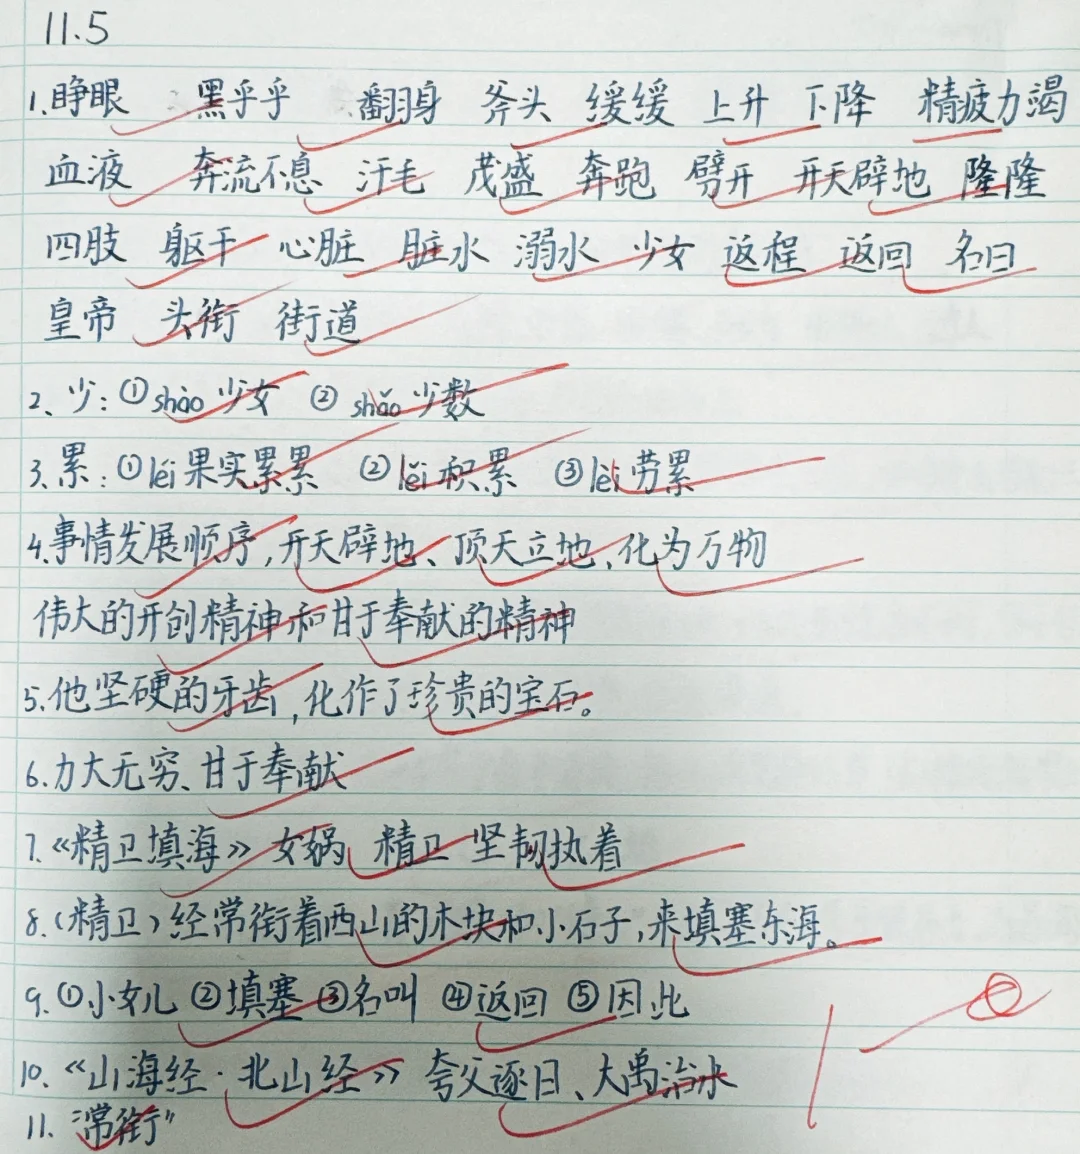 11.5
1.睁眼 黑乎乎 翻身 斧头 缓缓 上升 下降 精疲力竭
血液 奔流不息 汗毛 茂盛 奔跑 劈开 开天辟地 隆隆
四肢 躯干 心脏 脏水 溺水 少女 返程 返回 名曰
皇帝 头衔 街道
2、少:①shào少女 ② shǎo少数
3、累:①léi果实累累 ②lěi积累 ③lèi劳累
4.事情发展顺序,开天辟地、顶天立地、化为万物
伟大的开创精神和甘于奉献的精神
5.他坚硬的牙齿,化作了珍贵的宝石。
6.力大无穷、甘于奉献
7.《精卫填海》女娲 精卫 坚韧执着
8.(精卫)经常衔着西山的木块和小石子,来填塞东海。
9.①小女儿 ②填塞 ③名叫 ④返回 ⑤因此
10.《山海经·北山经》 夸父逐日、大禹治水
11."常衔"